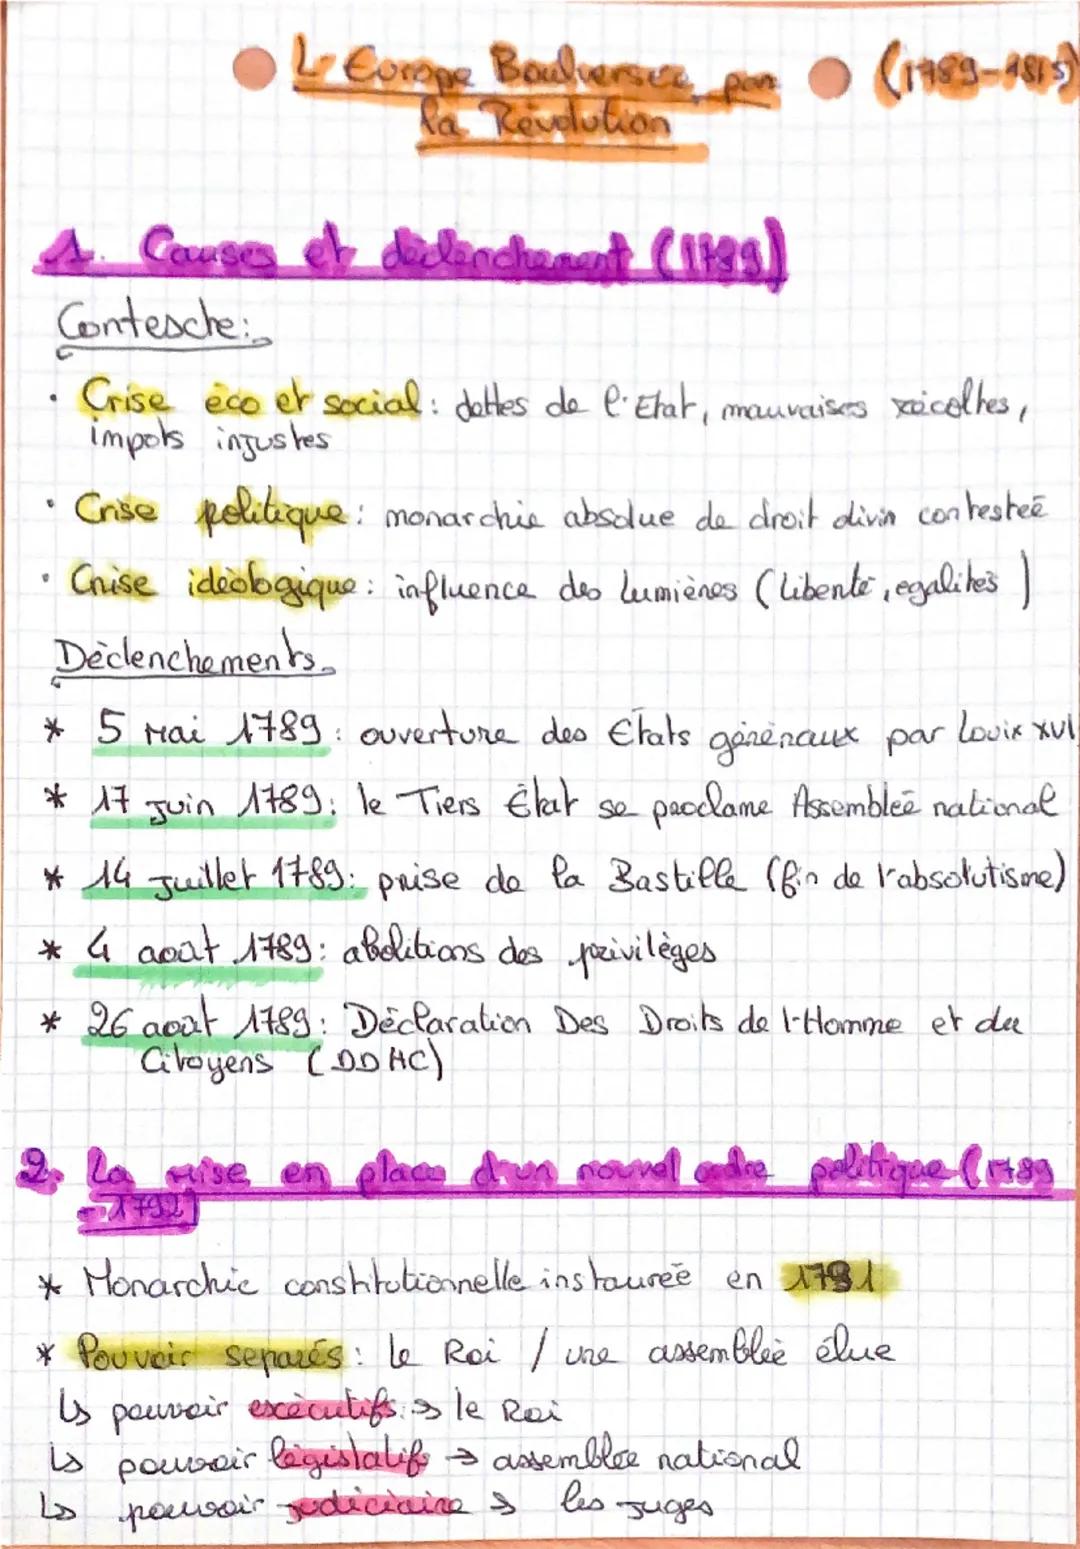 L'Europe Bouleversée par (1789-1815)
la Révolution
1. Causes et déclenchement (1789)
Contesche:
• Crise éco et social : dettes de l'Etat, mauvaises récoltes,
impots injustes
• Crise politique : monarchie absolue de droit divin contesteé
• Crise idéologique : influence des Lumières (liberté, egalités)
Déclenchements
* 5 Mai 1789 : ouverture des Etats généraux par Louis XVI
* 17 Juin 1789 : le Tiers État se proclame Assembleé national
* 14 Juillet 1789 : prise de la Bastille (fin de l'absolutisme)
* 4 août 1789 : abolitions des privilèges
* 26 août 1789 : Déclaration Des Droits de l'Homme et du
Citoyens (DDHC)
2. La Mise en place d'un nouvel ordre politique (1789
-1792)
* Monarchie constitutionnelle instaureé en 1791
* Pouvoir separés : le Roi / une assembleé élue
↳ pouvoir exécutifs → le Roi
↳ pouvoir législatifs → assemblée national
↳ pouvoir judiciaire → les juges